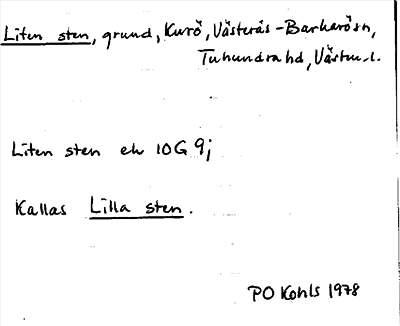 Liten sten, grund, Kurö, Västerås-Barkarö sn,
Tuhundra hd, Västm. l.
Liten sten ek 10G 9j
Kallas Lilla sten.
PO Kohls 1978